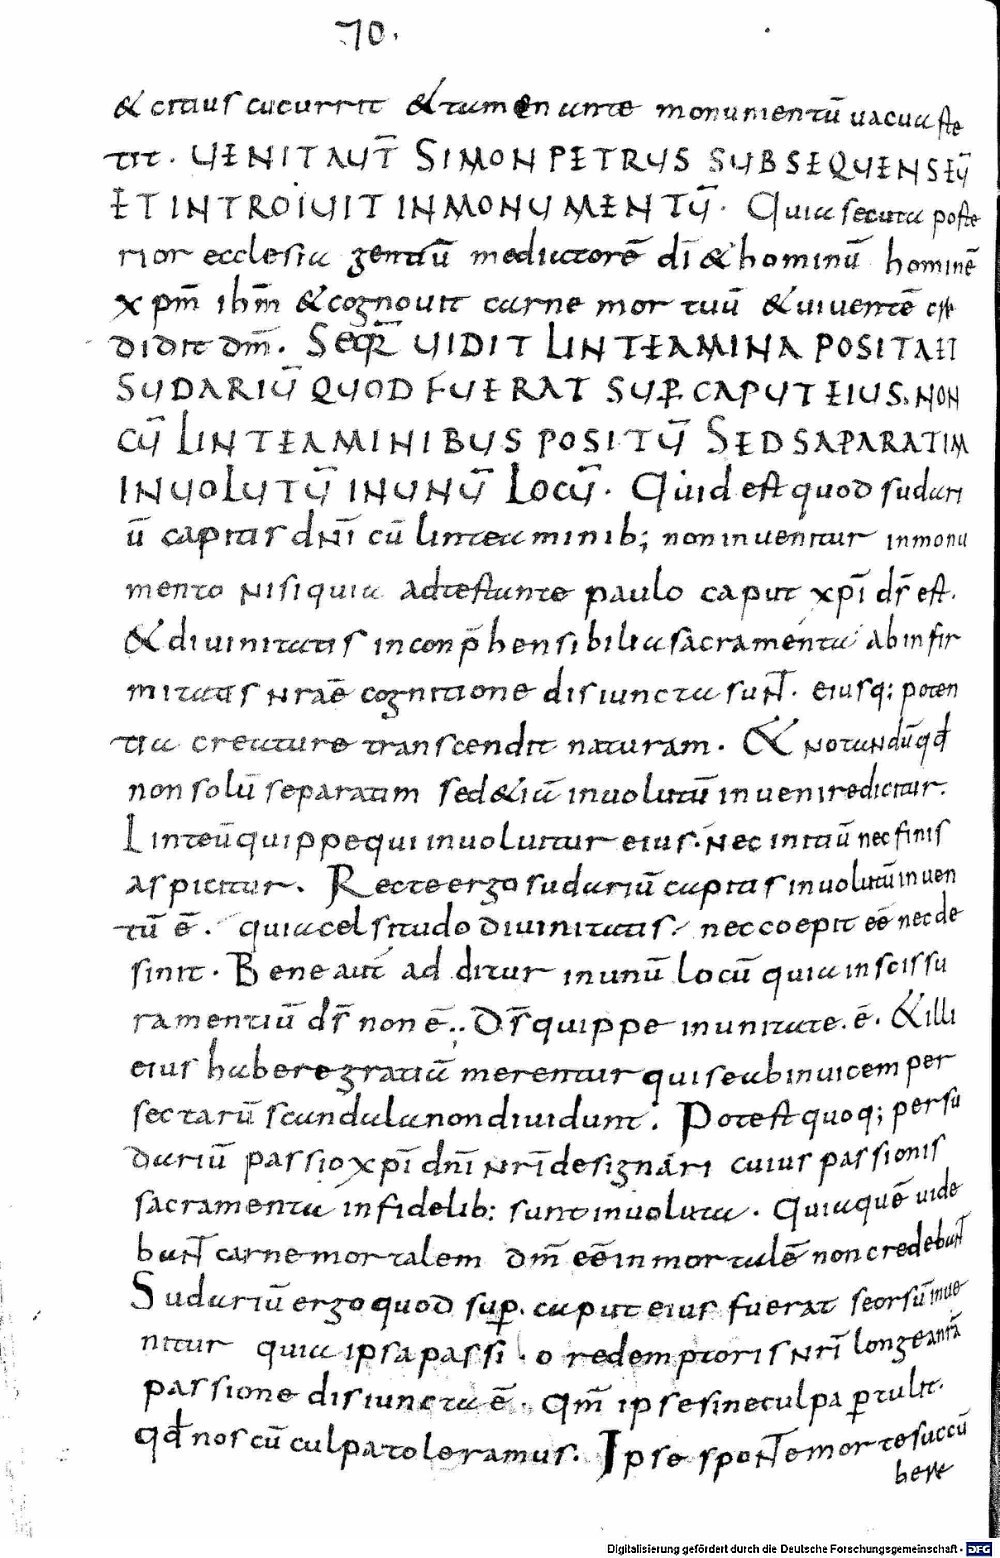 70.
& citius cucurrit & tamen ante monumentū uacua ste
tit. UENIT AUT̄ SIMON PETRUS SUBSEQUENS EŪ
ET INTROIUIT IN MONUMENTŪ. Quia secuta poste
rior ecclesia gentiū mediatorē dī & hominū hominē
xpm̄ ihm̄ & cognouit carne mortuū & uiuentē cre
didit dm̄. SEQR̄ UIDIT LINTEAMINA POSITA ET
SUDARIŪ QUOD FUERAT SUP CAPUT EIUS. NON
CŪ LINTEAMINIBUS POSITŪ SED SAPARATIM
INUOLUTŪ IN UNŪ LOCŪ. Quid est quod sudari
ū capitis dnī cū linteaminib; non inuenitur in monu
mento nisi quia adtestante paulo caput xpī dr̄ est.
& diuinitatis inconp̄hensibilia sacramenta ab infir
mitatis nrae cognitione disiuncta sunt. eiusq; poten
tia creature transcendit naturam. & notandū qd
non solū separatim sed & iā inuolutū inuenire dicitur.
Linteū quippe qui inuoluitur eius. nec initiū nec finis
aspicitur. Recte ergo sudariū capitis inuolutū inuen
tū ē. quia celsitudo diuinitatis. nec coepit eē nec de
sinit. Bene aut̄ additur in unū locū quia in scissu
ra mentiū dr̄ non ē. Dr̄ quippe in unitate. ē. & illi
eius habere gratiā merentur qui se ab inuicem per
sectarū scandala non diuidunt. Potest quoq; per su
dariū passio xpī dnī nrī designari cuius passionis
sacramenta infidelib: sunt inuoluta. Quia quē uide
bant carne mortalem dm̄ eē inmortalē non credebant
Sudariū ergo quod sup. caput eius fuerat seorsū inue
nitur quia ipsa passio redemptoris nrī longe a nr̄a
passione disiuncta ē. Qm̄ ipse sine culpa ptulit.
qd nos cū culpa toleramus. Ipse sponte morte succū
bere
Digitalisierung gefördert durch die Deutsche Forschungsgemeinschaft - DFG